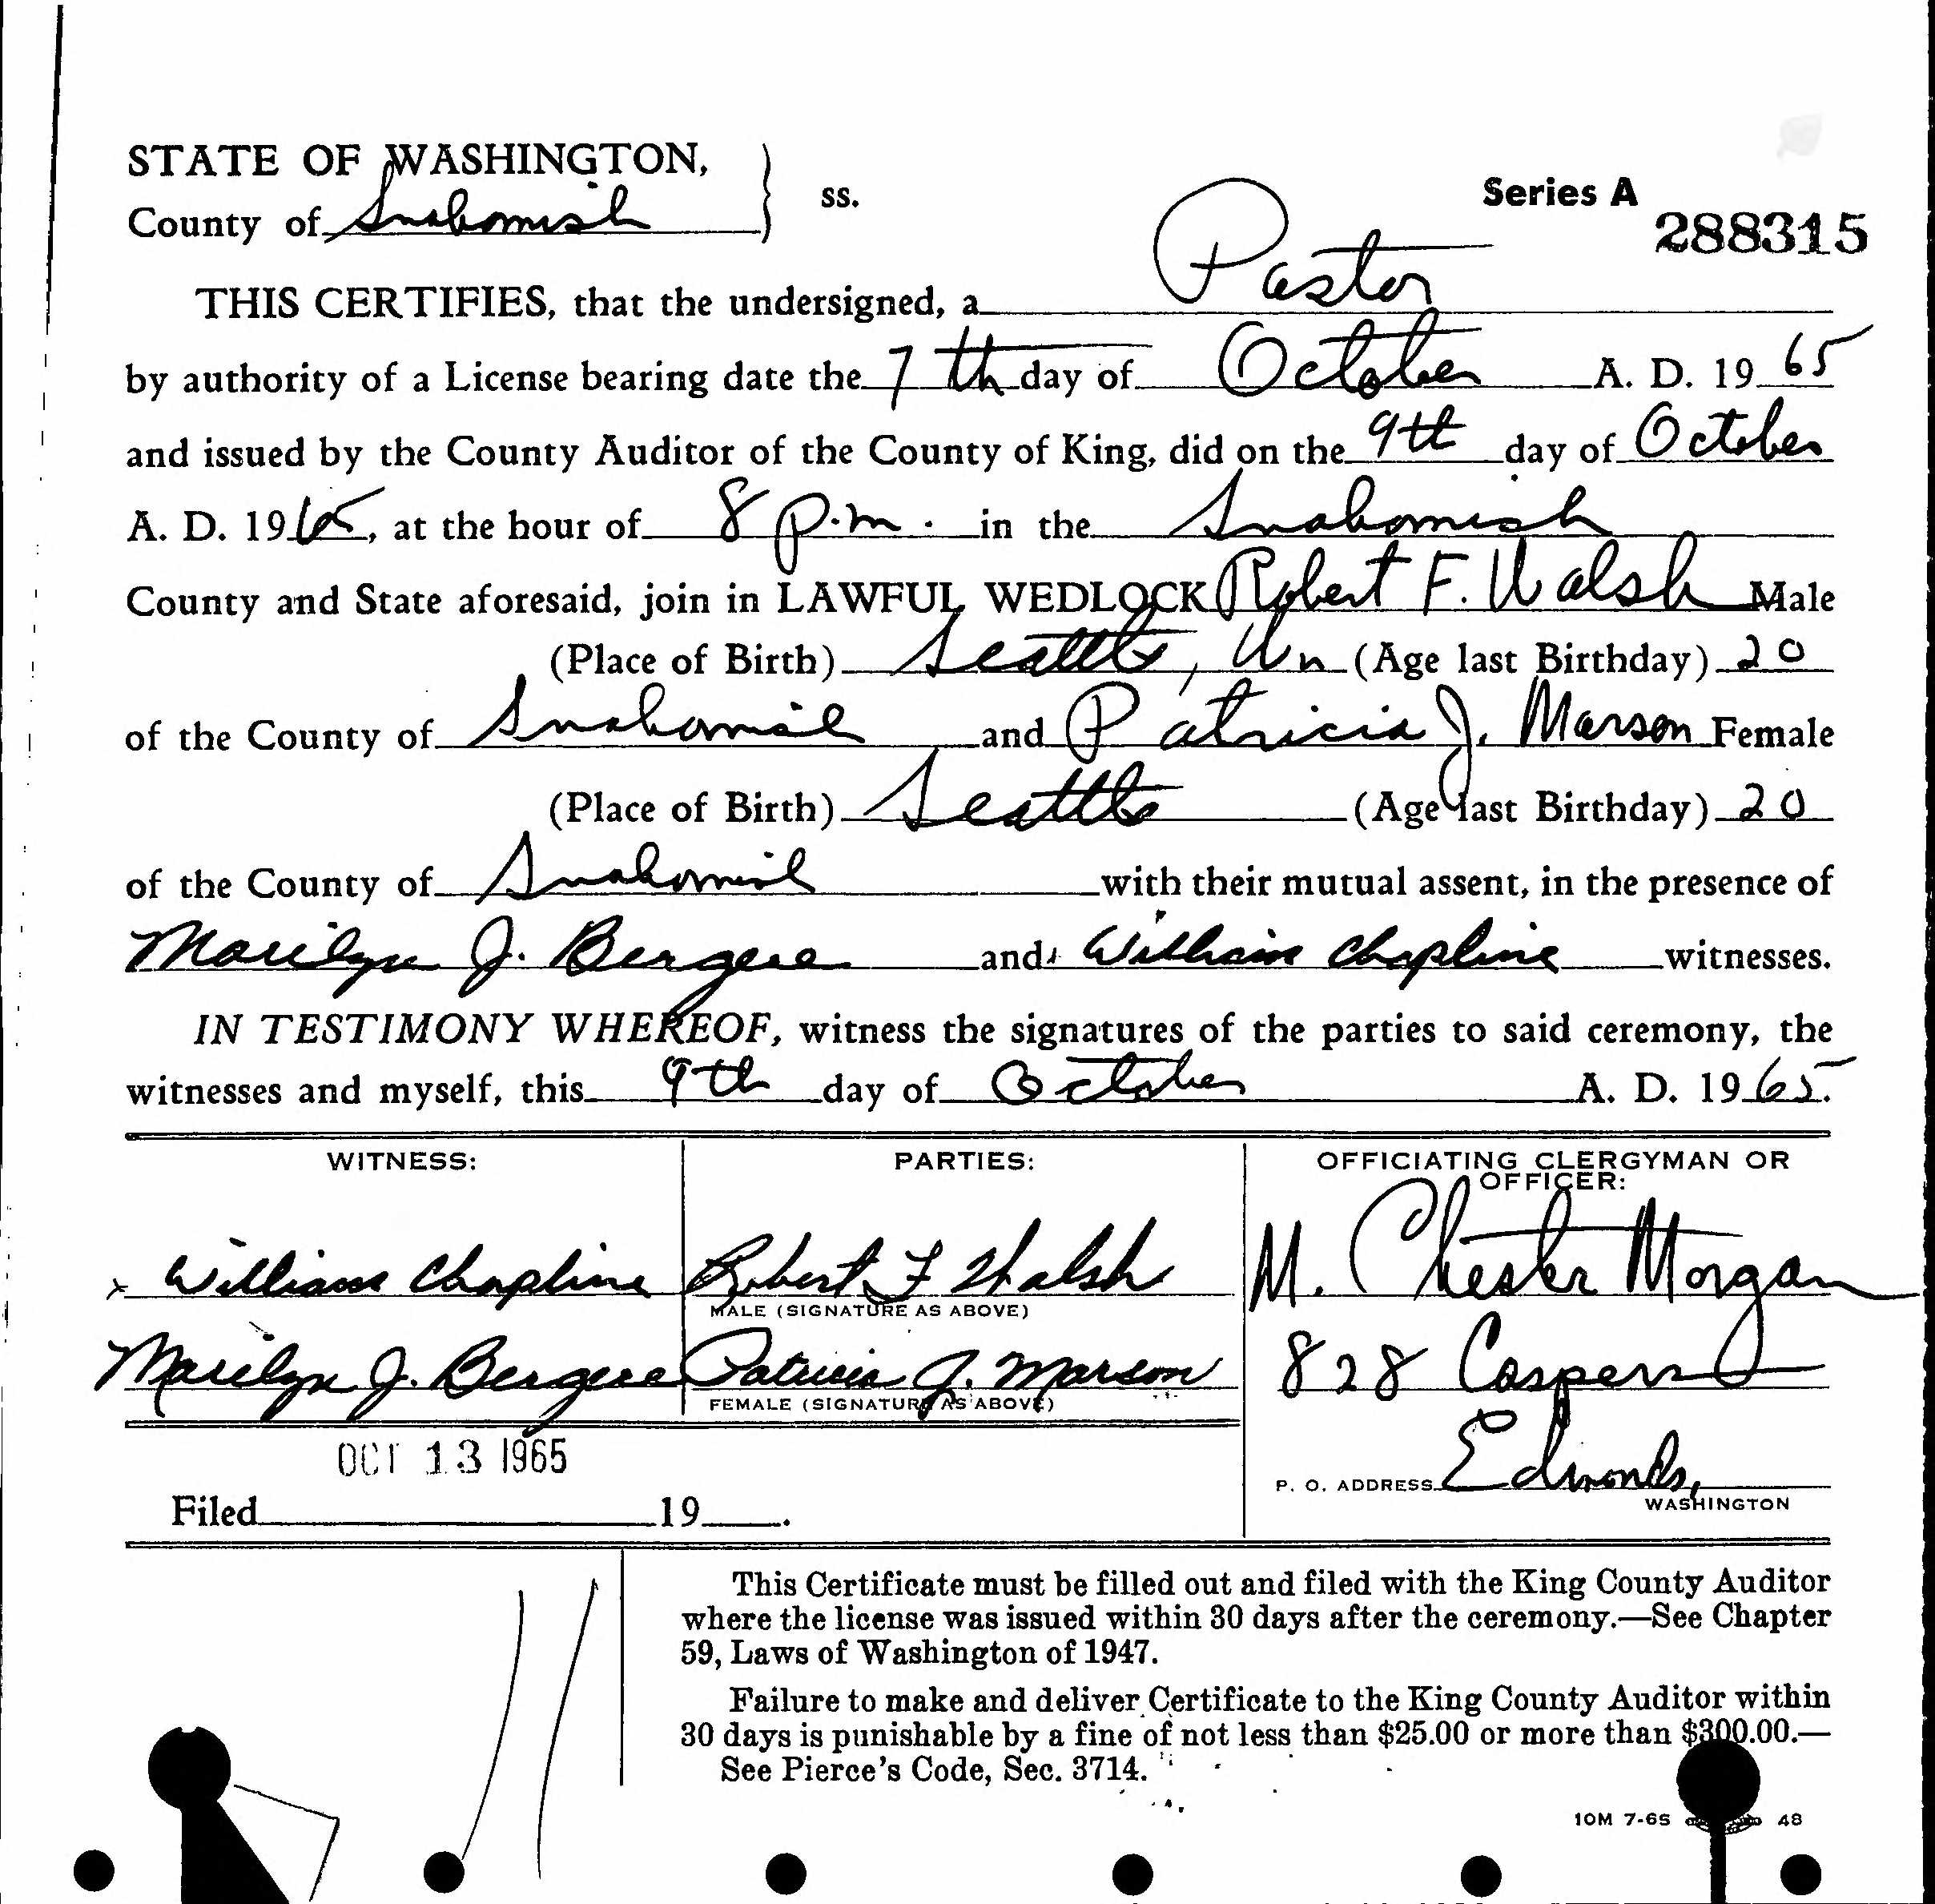 STATE OF WASHINGTON,
County of Snohomish } ss.
Series A
288315
THIS CERTIFIES, that the undersigned, a Pastor
by authority of a License bearing date the 7th day of October A. D. 1965
and issued by the County Auditor of the County of King, did on the 9th day of October
A. D. 1965, at the hour of 8 p.m. in the Snohomish
County and State aforesaid, join in LAWFUL WEDLOCK Robert F. Walsh Male
(Place of Birth) Seattle, Wn (Age last Birthday) 20
of the County of Snohomish and Patricia J. Marson Female
(Place of Birth) Seattle (Age last Birthday) 20
of the County of Snohomish with their mutual assent, in the presence of
Marilyn J. Bergere and William Chapline witnesses.
IN TESTIMONY WHEREOF, witness the signatures of the parties to said ceremony, the
witnesses and myself, this 9th day of October A. D. 1965.
WITNESS: PARTIES: OFFICIATING CLERGYMAN OR
OFFICER:
x William Chapline Robert F Walsh M. Chester Morgan
MALE (SIGNATURE AS ABOVE)
Marilyn J. Bergere Patricia J. Marson 828 Caspers
FEMALE (SIGNATURE AS ABOVE)
OCT 13 1965
P. O. ADDRESS Edmonds,
WASHINGTON
Filed 19 .
This Certificate must be filled out and filed with the King County Auditor
where the license was issued within 30 days after the ceremony.—See Chapter
59, Laws of Washington of 1947.
Failure to make and deliver Certificate to the King County Auditor within
30 days is punishable by a fine of not less than $25.00 or more than $300.00.—
See Pierce's Code, Sec. 3714.
10M 7-65 48